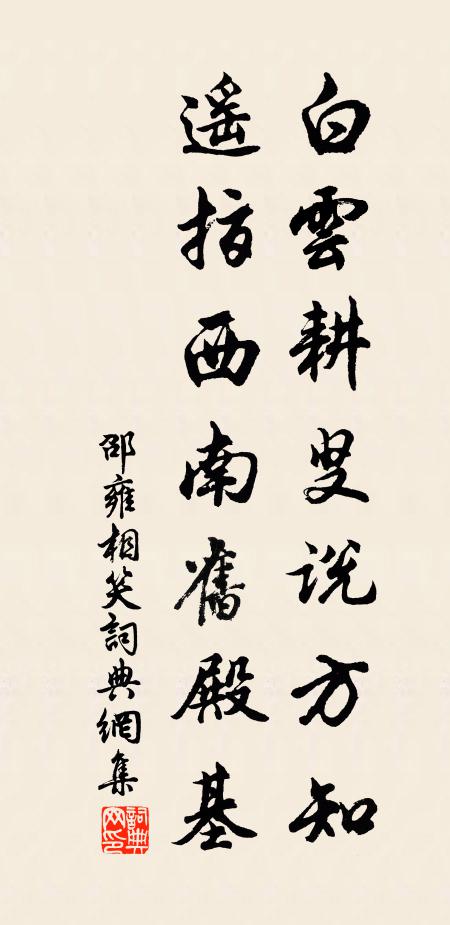 白雲耕叟説方知
遥指西南舊殿基
邵雍相笑詞典網集
詞典網印